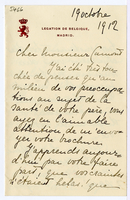 19 octobre
1912
LEGATION DE BELGIQUE,
MADRID.
Cher Monsieur
J'ai été très tou-
chée de penser qu'au
milieu de vos preoccupa-
tions au sujet de la
santé de votre père, vous
ayez eu l'aimable
attention de m'en-
voyer votre brochure
J'apprends aujour-
d'hui par votre faire
part, que vos craintes
n'étaient hélas! que